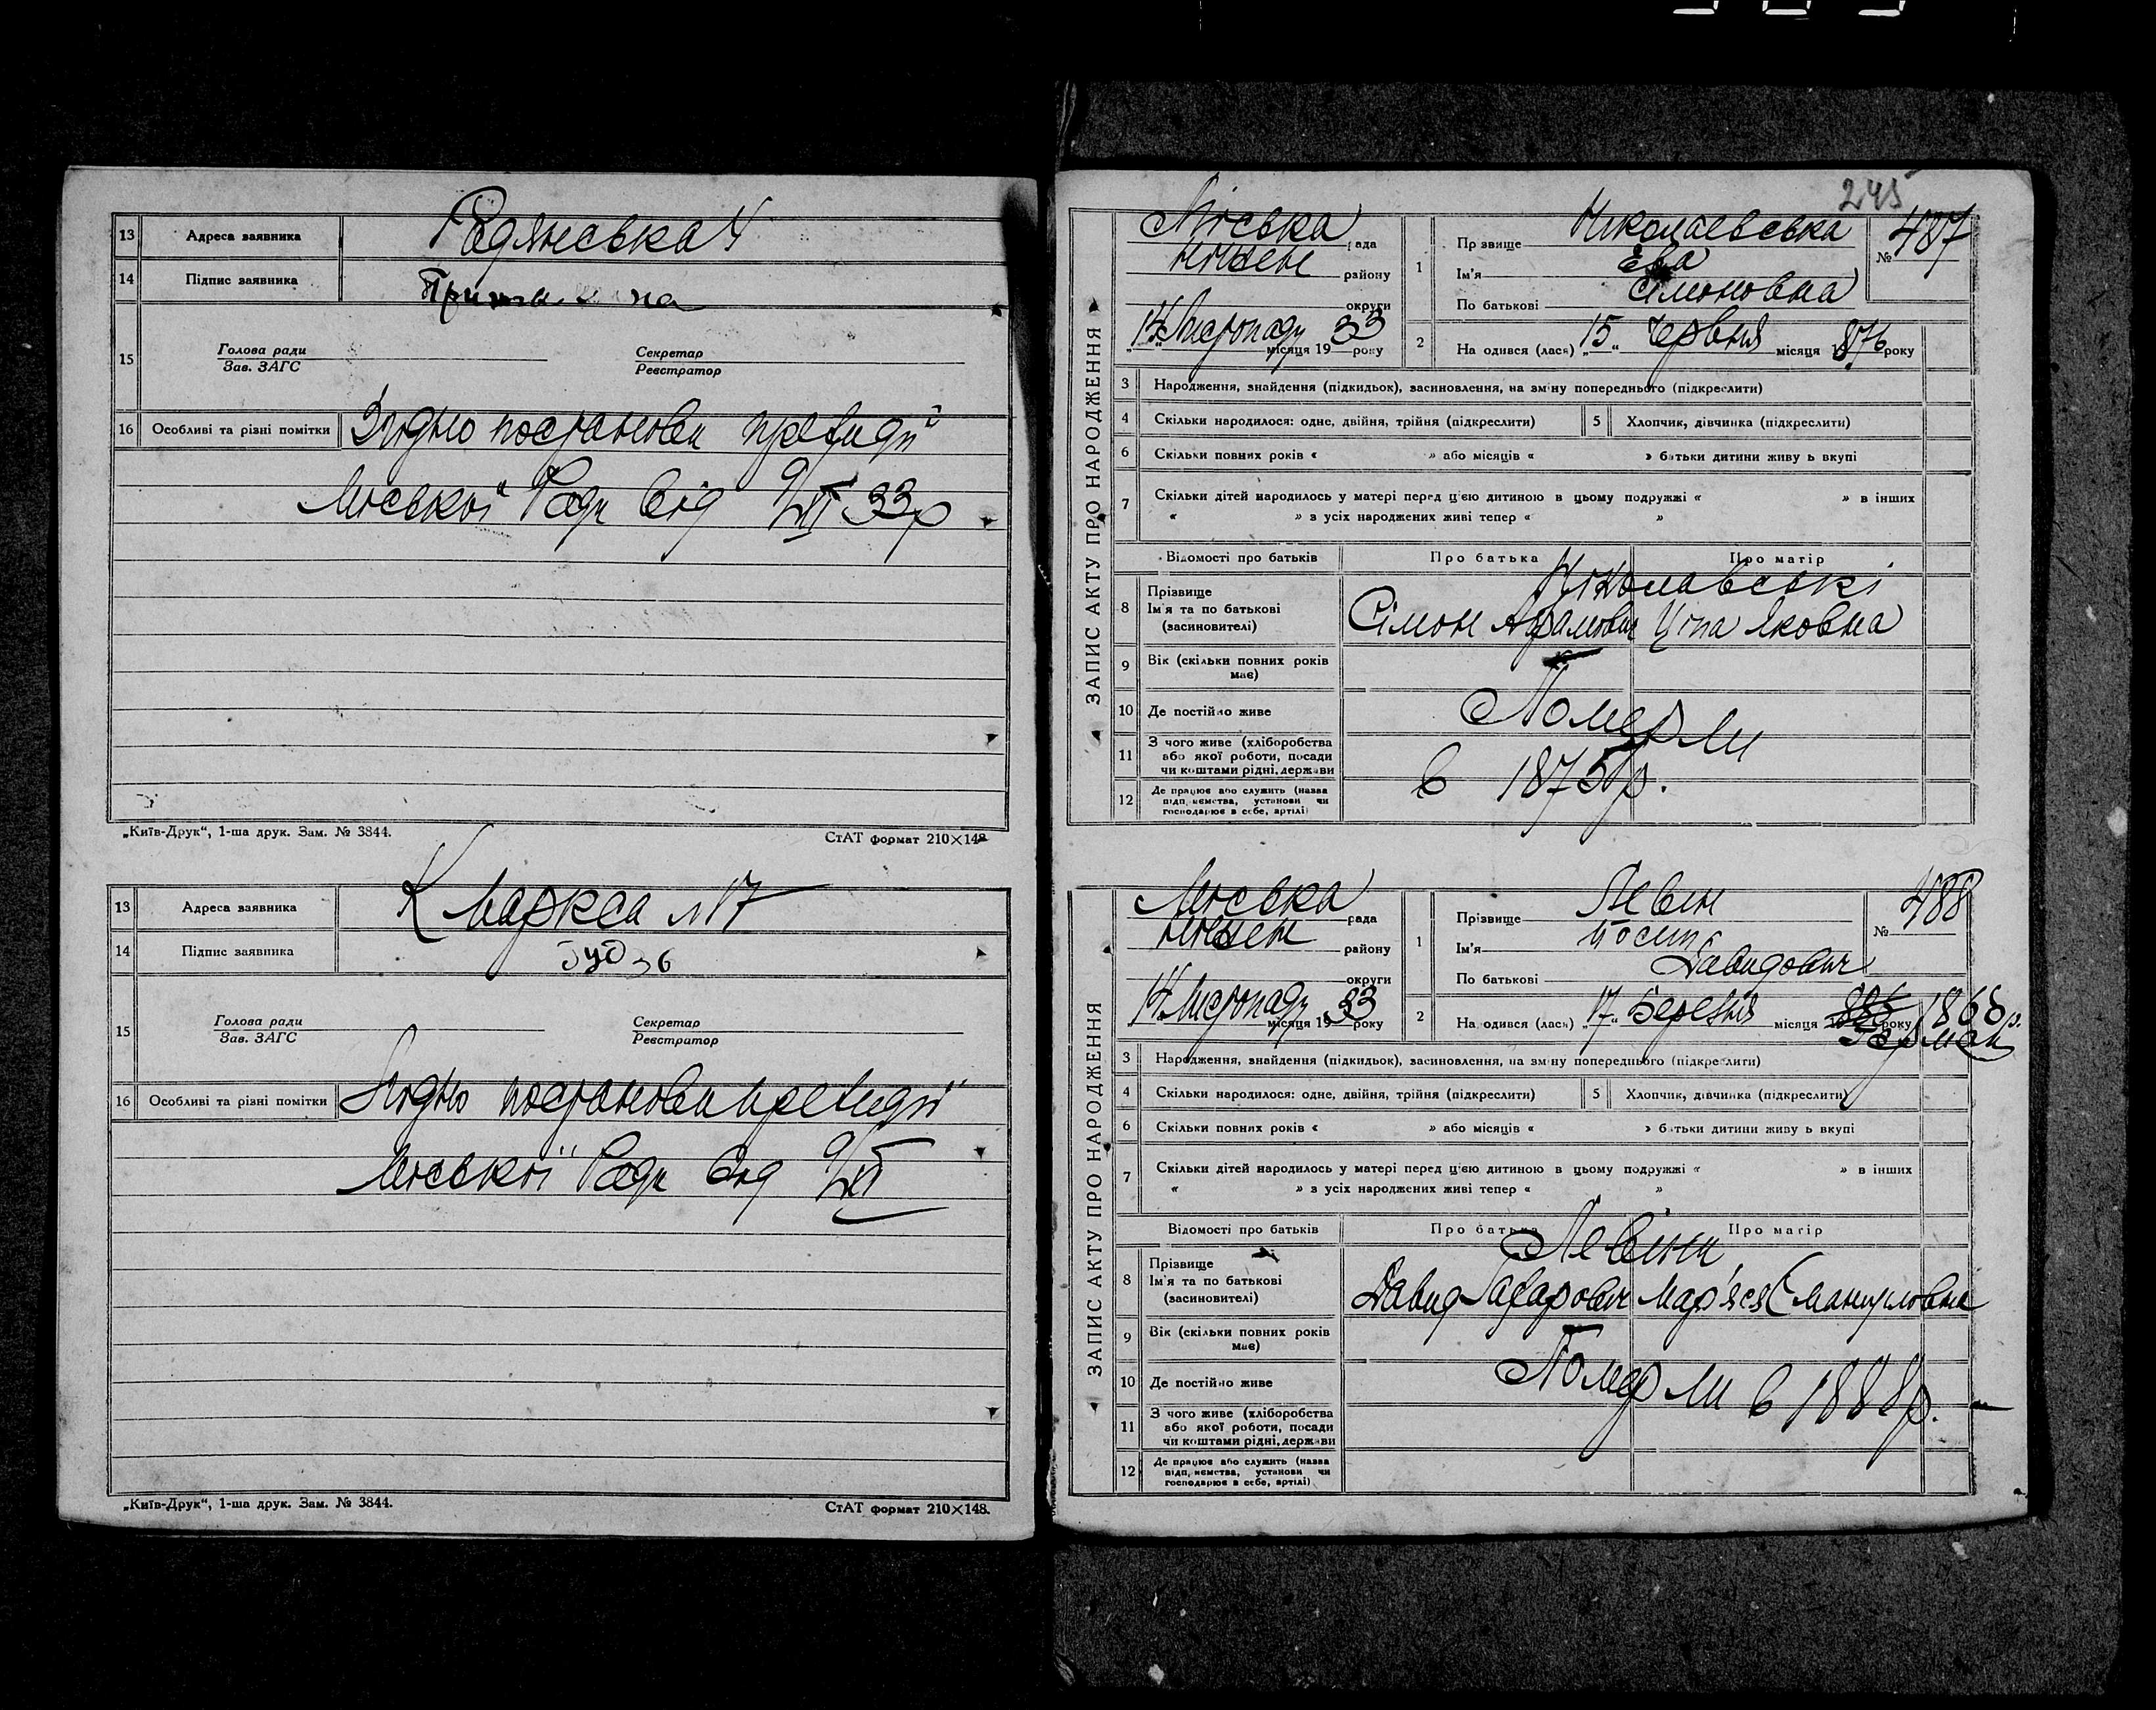 13 Адреса заявника Радянська 4
14 Підпис заявника
15 Голова ради Секретар
Зав. ЗАГС Реєстратор
16 Особливі та різні помітки Згідно постанови президії
Міської Ради від 9/XI 33 р
„Київ-Друк“, 1-ша друк. Зам. № 3844. СтАТ формат 210×148
13 Адреса заявника К Маркса № 17
14 Підпис заявника
15 Голова ради Секретар
Зав. ЗАГС Реєстратор
16 Особливі та різні помітки Згідно постанови президії
Міської Ради від 9/XI
„Київ-Друк“, 1-ша друк. Зам. № 3844. СтАТ формат 210×148.
245
ЗАПИС АКТУ ПРО НАРОДЖЕННЯ
Міська рада
Ніжен району
округи
„14“ Листопаду місяця 1933 року
1 Прізвище Николаєвська № 487
Ім'я Ева
По батькові Сімоновна
2 На одився (лася) „15“ Червня місяця 1876 року
3 Народження, знайдення (підкидьок), засиновлення, на зміну попереднього (підкреслити)
4 Скільки народилося: одне, двійня, трійня (підкреслити) 5 Хлопчик, дівчинка (підкреслити)
6 Скільки повних років « » або місяців « » батьки дитини живу ь вкупі
7 Скільки дітей народилось у матері перед цією дитиною в цьому подружжі « » в інших
« » з усіх народжених живі тепер « »
Відомості про батьків Про батька Про матір
8 Прізвище Ніколаевські
Ім'я та по батькові Сімон Абрамович Ціпа Яковна
(засиновителі)
9 Вік (скільки повних років має)
10 Де постійно живе Померли
11 З чого живе (хліборобства або якої роботи, посади чи коштами рідні, держави в 1875 р.
12 Де працює або служить (назва підприємства, установи чи господарює в себе, артілі)
ЗАПИС АКТУ ПРО НАРОДЖЕННЯ
Міська рада
Ніжен району
округи
„14“ Листопаду місяця 1933 року
1 Прізвище Левін № 488
Ім'я Йосип
По батькові Давидович
2 На одився (лася) „17“ Березня місяця 1885 року 1868 р.
3 Народження, знайдення (підкидьок), засиновлення, на зміну попереднього (підкреслити)
4 Скільки народилося: одне, двійня, трійня (підкреслити) 5 Хлопчик, дівчинка (підкреслити)
6 Скільки повних років « » або місяців « » батьки дитини живу ь вкупі
7 Скільки дітей народилось у матері перед цією дитиною в цьому подружжі « » в інших
« » з усіх народжених живі тепер « »
Відомості про батьків Про батька Про матір
8 Прізвище Левіни
Ім'я та по батькові Давид Лазарович Мар'яся Емануиловна
(засиновителі)
9 Вік (скільки повних років має)
10 Де постійно живе Померли в 1888 р.
11 З чого живе (хліборобства або якої роботи, посади чи коштами рідні, держави
12 Де працює або служить (назва підприємства, установи чи господарює в себе, артілі)